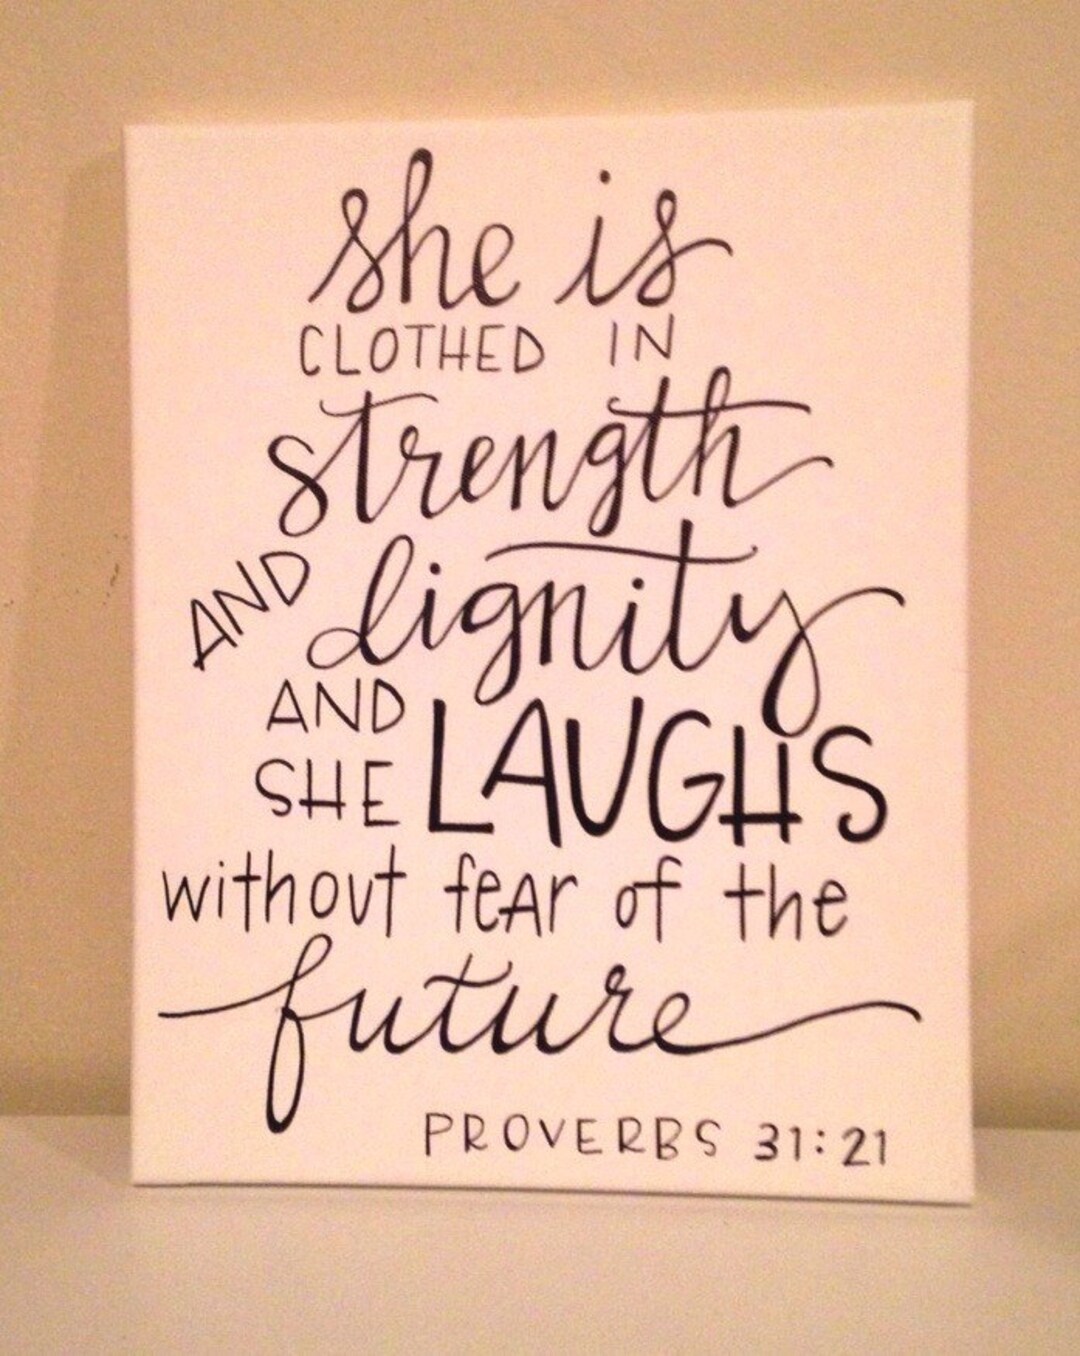 she is
CLOTHED IN
strength
AND dignity
AND
SHE LAUGHS
without feAr of the
future
PROVERBS 31:21